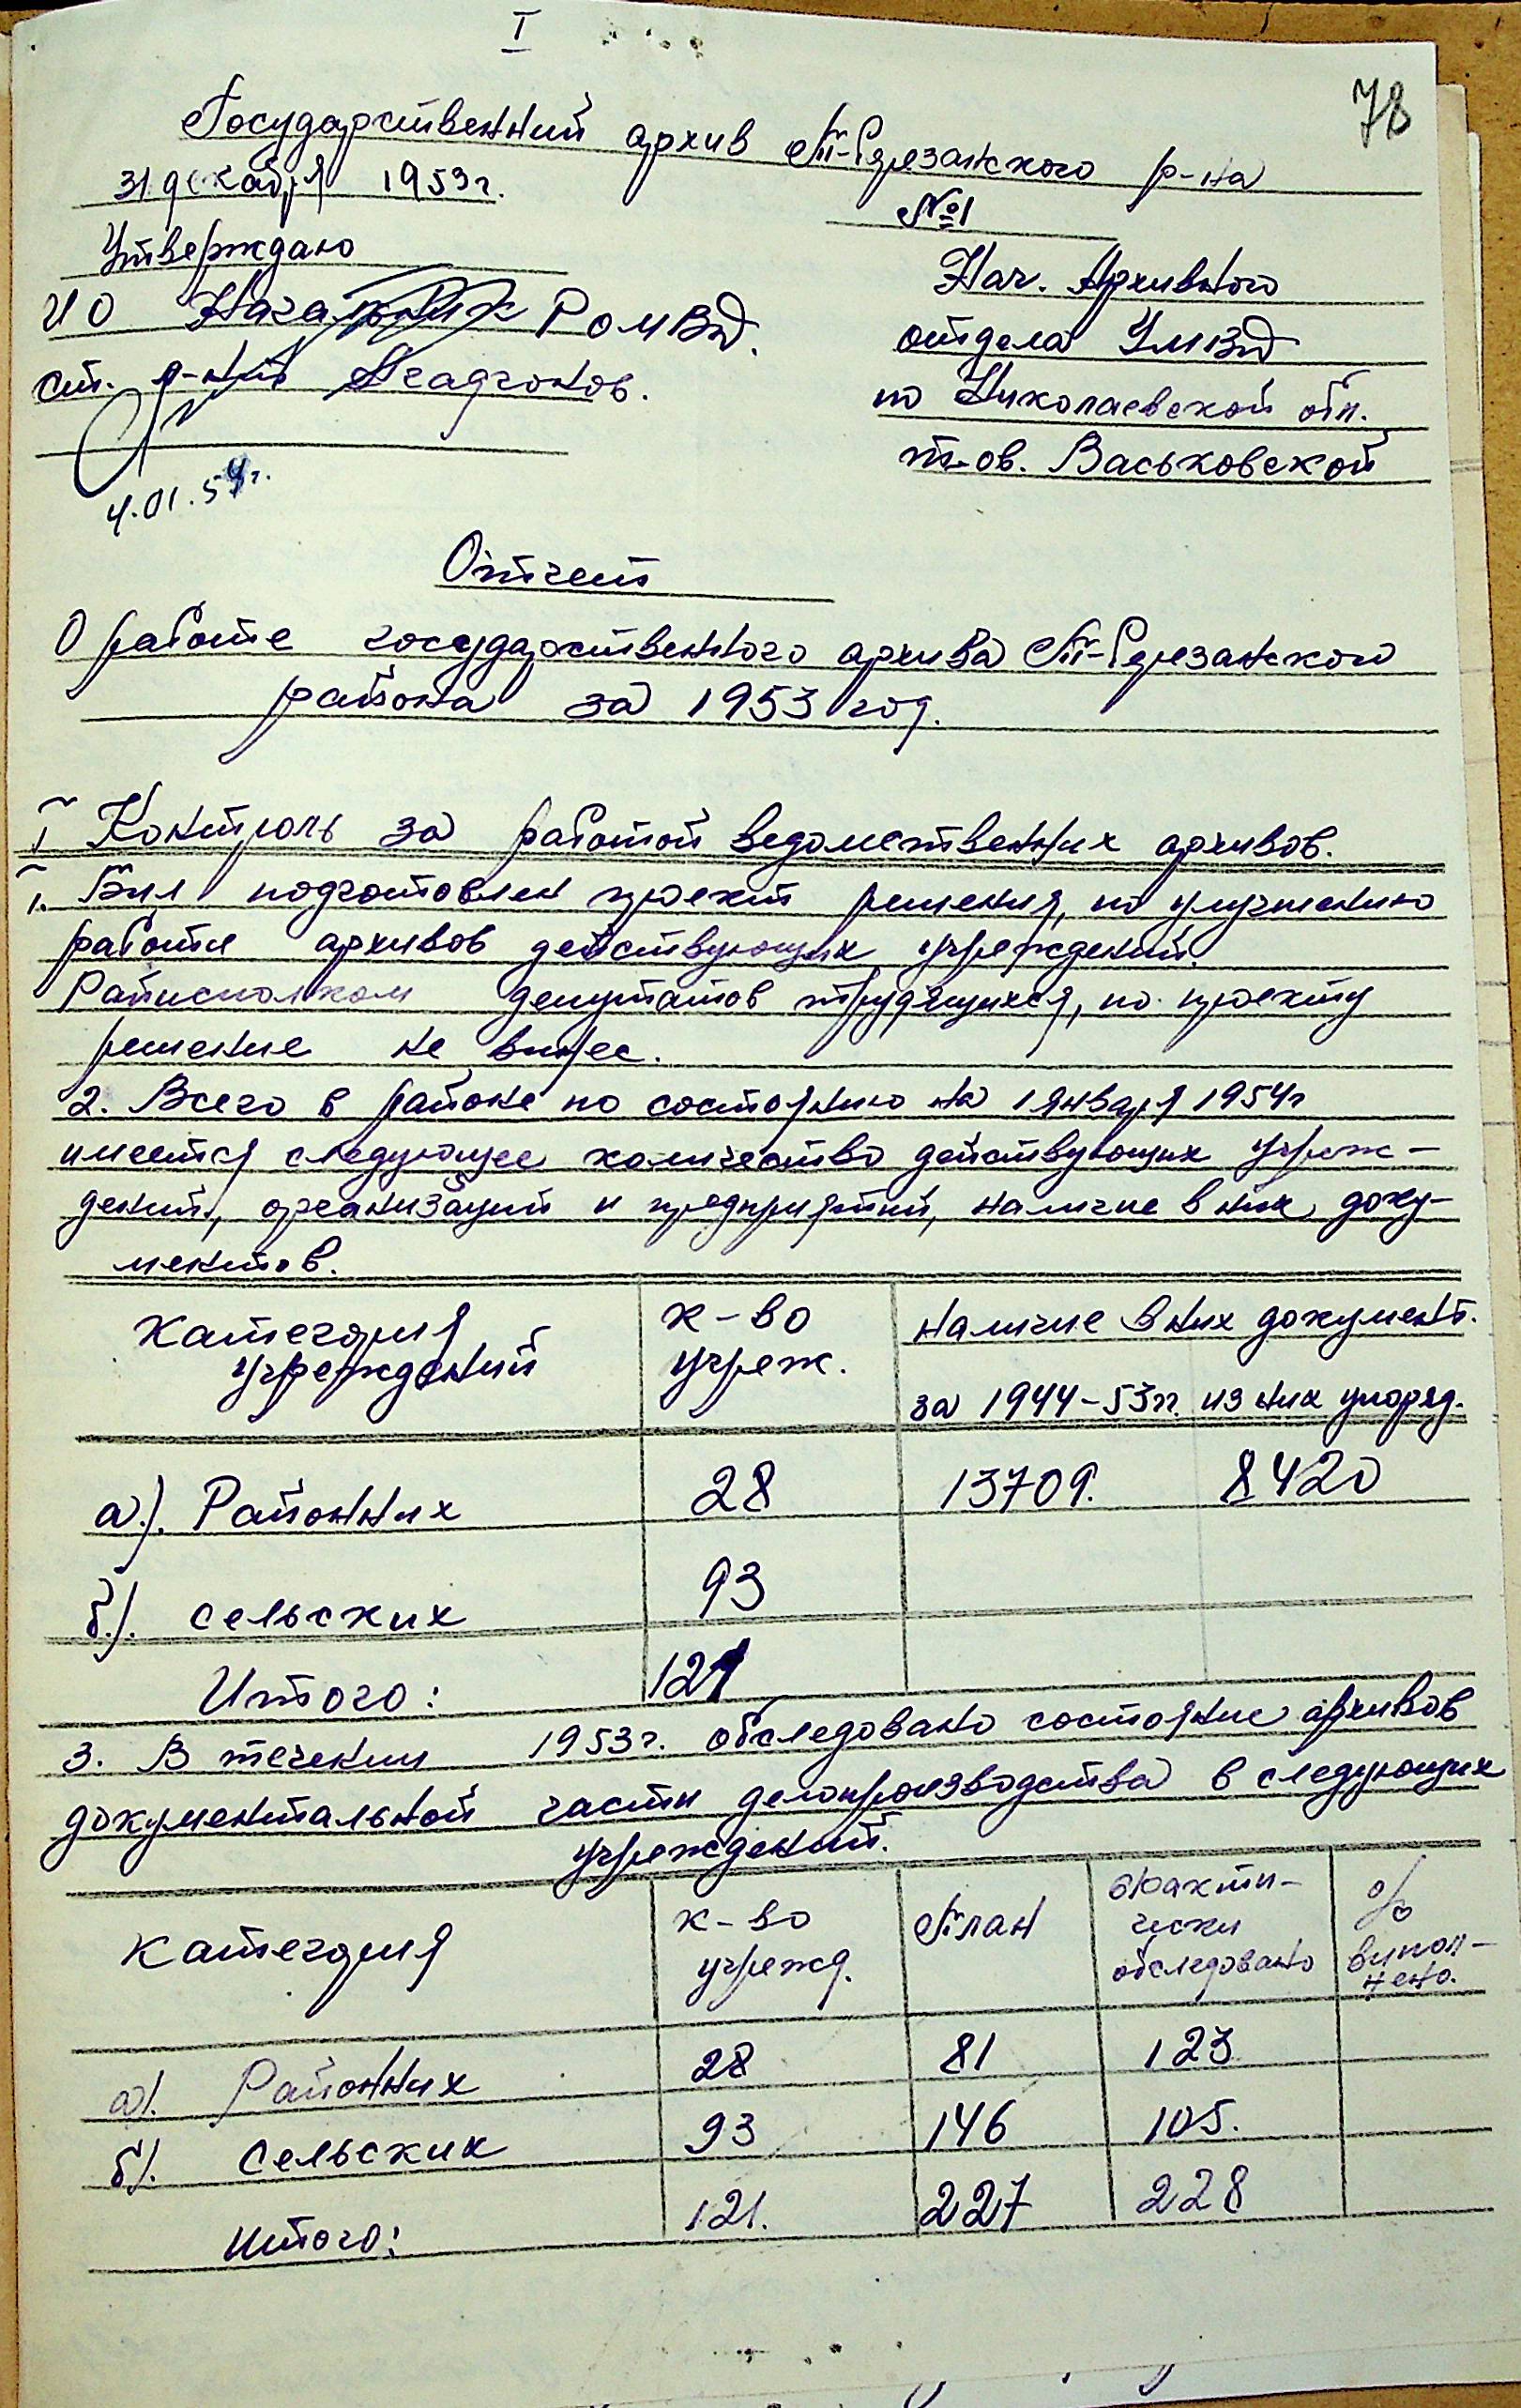 I
78
Государственний архив Т-Березанского р-на
31 декабря 1953г.
№1
Утверждаю
Нач. Архивного
ИО Начальник РОМВД.
отдела УМВД
ст. л-нт
по Николаевской обл.
тов. Васьковской
4.01.54г.
Отчет
О работе государственного архива Т-Березанского
района за 1953 год.
I Контроль за работой ведомственних архивов.
1. Бил подготовлен проект решения, по улучшению
работи архивов действующих учреждений.
Райисполком депутатов трудящихся, по проекту
решение не винес.
2. Всего в районе по состоянию на 1 января 1954г
имеется следующее количество действующих учреж-
дений, организаций и предприятий, наличие в них доку-
ментов.
Категория учреждений
к-во учреж.
наличие в них документ.
за 1944-53гг. из них упоряд.
а). Районних 28 13709. 8420
б). сельских 93
Итого: 121
3. В течении 1953г. обследовано состояние архивов
документальной части делопроизводства в следующих
учреждений.
Категория
к-во учрежд.
План
Факти-
чески
обследовано
%
випол-
нено.
а). Районних 28 81 123
б). Сельских 93 146 105.
итого: 121. 227 228